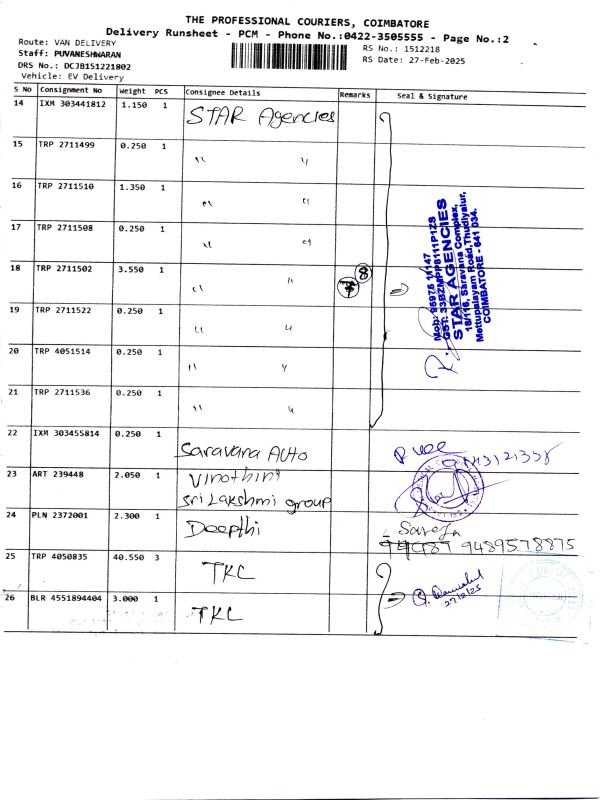 THE PROFESSIONAL COURIERS, COIMBATORE
Delivery Runsheet - PCM - Phone No.:0422-3505555 - Page No.:2
Route: VAN DELIVERY
RS No.: 1512218
Staff: PUVANESHWARAN
RS Date: 27-Feb-2025
DRS No.: DCJB151221802
Vehicle: EV Delivery
S No Consignment No Weight PCS Consignee Details Remarks Seal & Signature
14 IXM 303441812 1.150 1 STAR Agencies
15 TRP 2711499 0.250 1 " "
16 TRP 2711510 1.350 1 " "
17 TRP 2711508 0.250 1 " "
18 TRP 2711502 3.550 1 " " 8
19 TRP 2711522 0.250 1 " "
20 TRP 4051514 0.250 1 " "
21 TRP 2711536 0.250 1 " "
Mob: 95975 11147
GST: 33BZMPP8111P1ZS
STAR AGENCIES
18/116, Saravana Complex,
Mettupalayam Road, Thudiyalur,
COIMBATORE - 641 034.
22 IXM 303455814 0.250 1 Saravana Auto
23 ART 239448 2.050 1 Vinothini
Sri Lakshmi group
24 PLN 2372001 2.300 1 Deepthi
9489578875
25 TRP 4050835 40.550 3 TKC
26 BLR 4551894404 3.000 1 TKC
27/2/25